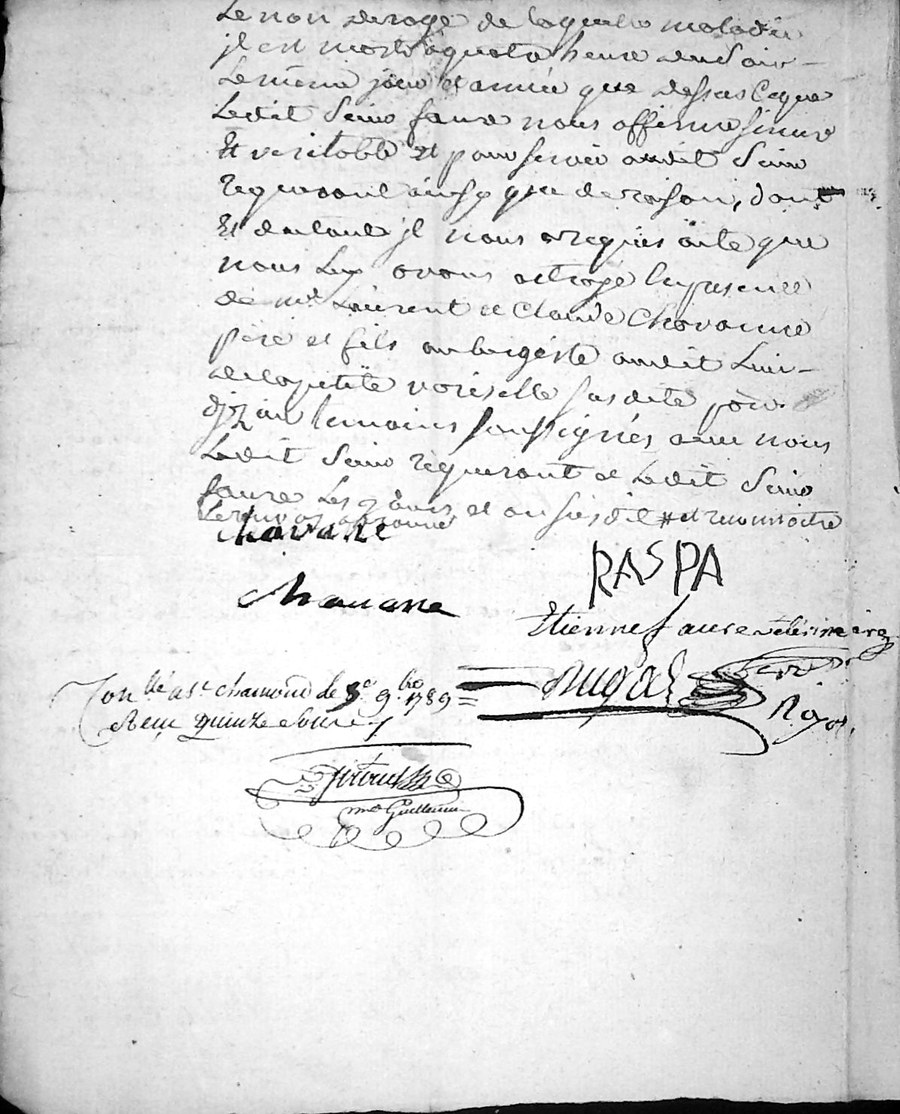 Le nom de rage de laquelle maladie
jl est mort à quatre heure du Soir
Le même jour et année que dessus Ceque
Ledit Sieur faure nous affirme sincere
Et veritable Et pour servir audit Sieur
requerant ainsy que de raison, dont
Et du tout jl nous a requis acte que
nous Luy avons octroyé En presence
de mrs Laurent et Claude Chavanne
père et fils aubergiste audit Lieu
de la petite varizelle susdite
temoins soussignés avec nous
Ledit Sieur requerant et Ledit Sieur
faure Les
Chavane
RASPA
Chavane
Etienne faure veterinaire
Con.lé a St chamond le 3e 9.bre 1789
Reçu quinze sous
mr Guillemin